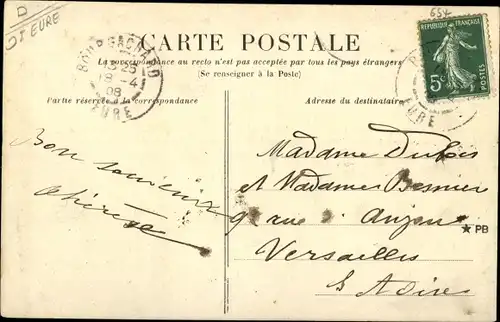 D
27 EURE
657
CARTE POSTALE
La correspondance au recto n'est pas acceptée par tous les pays étrangers
(Se renseigner à la Poste)
Partie réservée à la correspondance
Adresse du destinataire
BOURGACHARD
18 -4
08
EURE
RÉPUBLIQUE FRANÇAISE
5c
POSTES
EURE
Bon souvenir
Thérèse
Madame Dubois
et Madame Besnier
9 rue d'Anjou
Versailles
S et Oise
★ PB